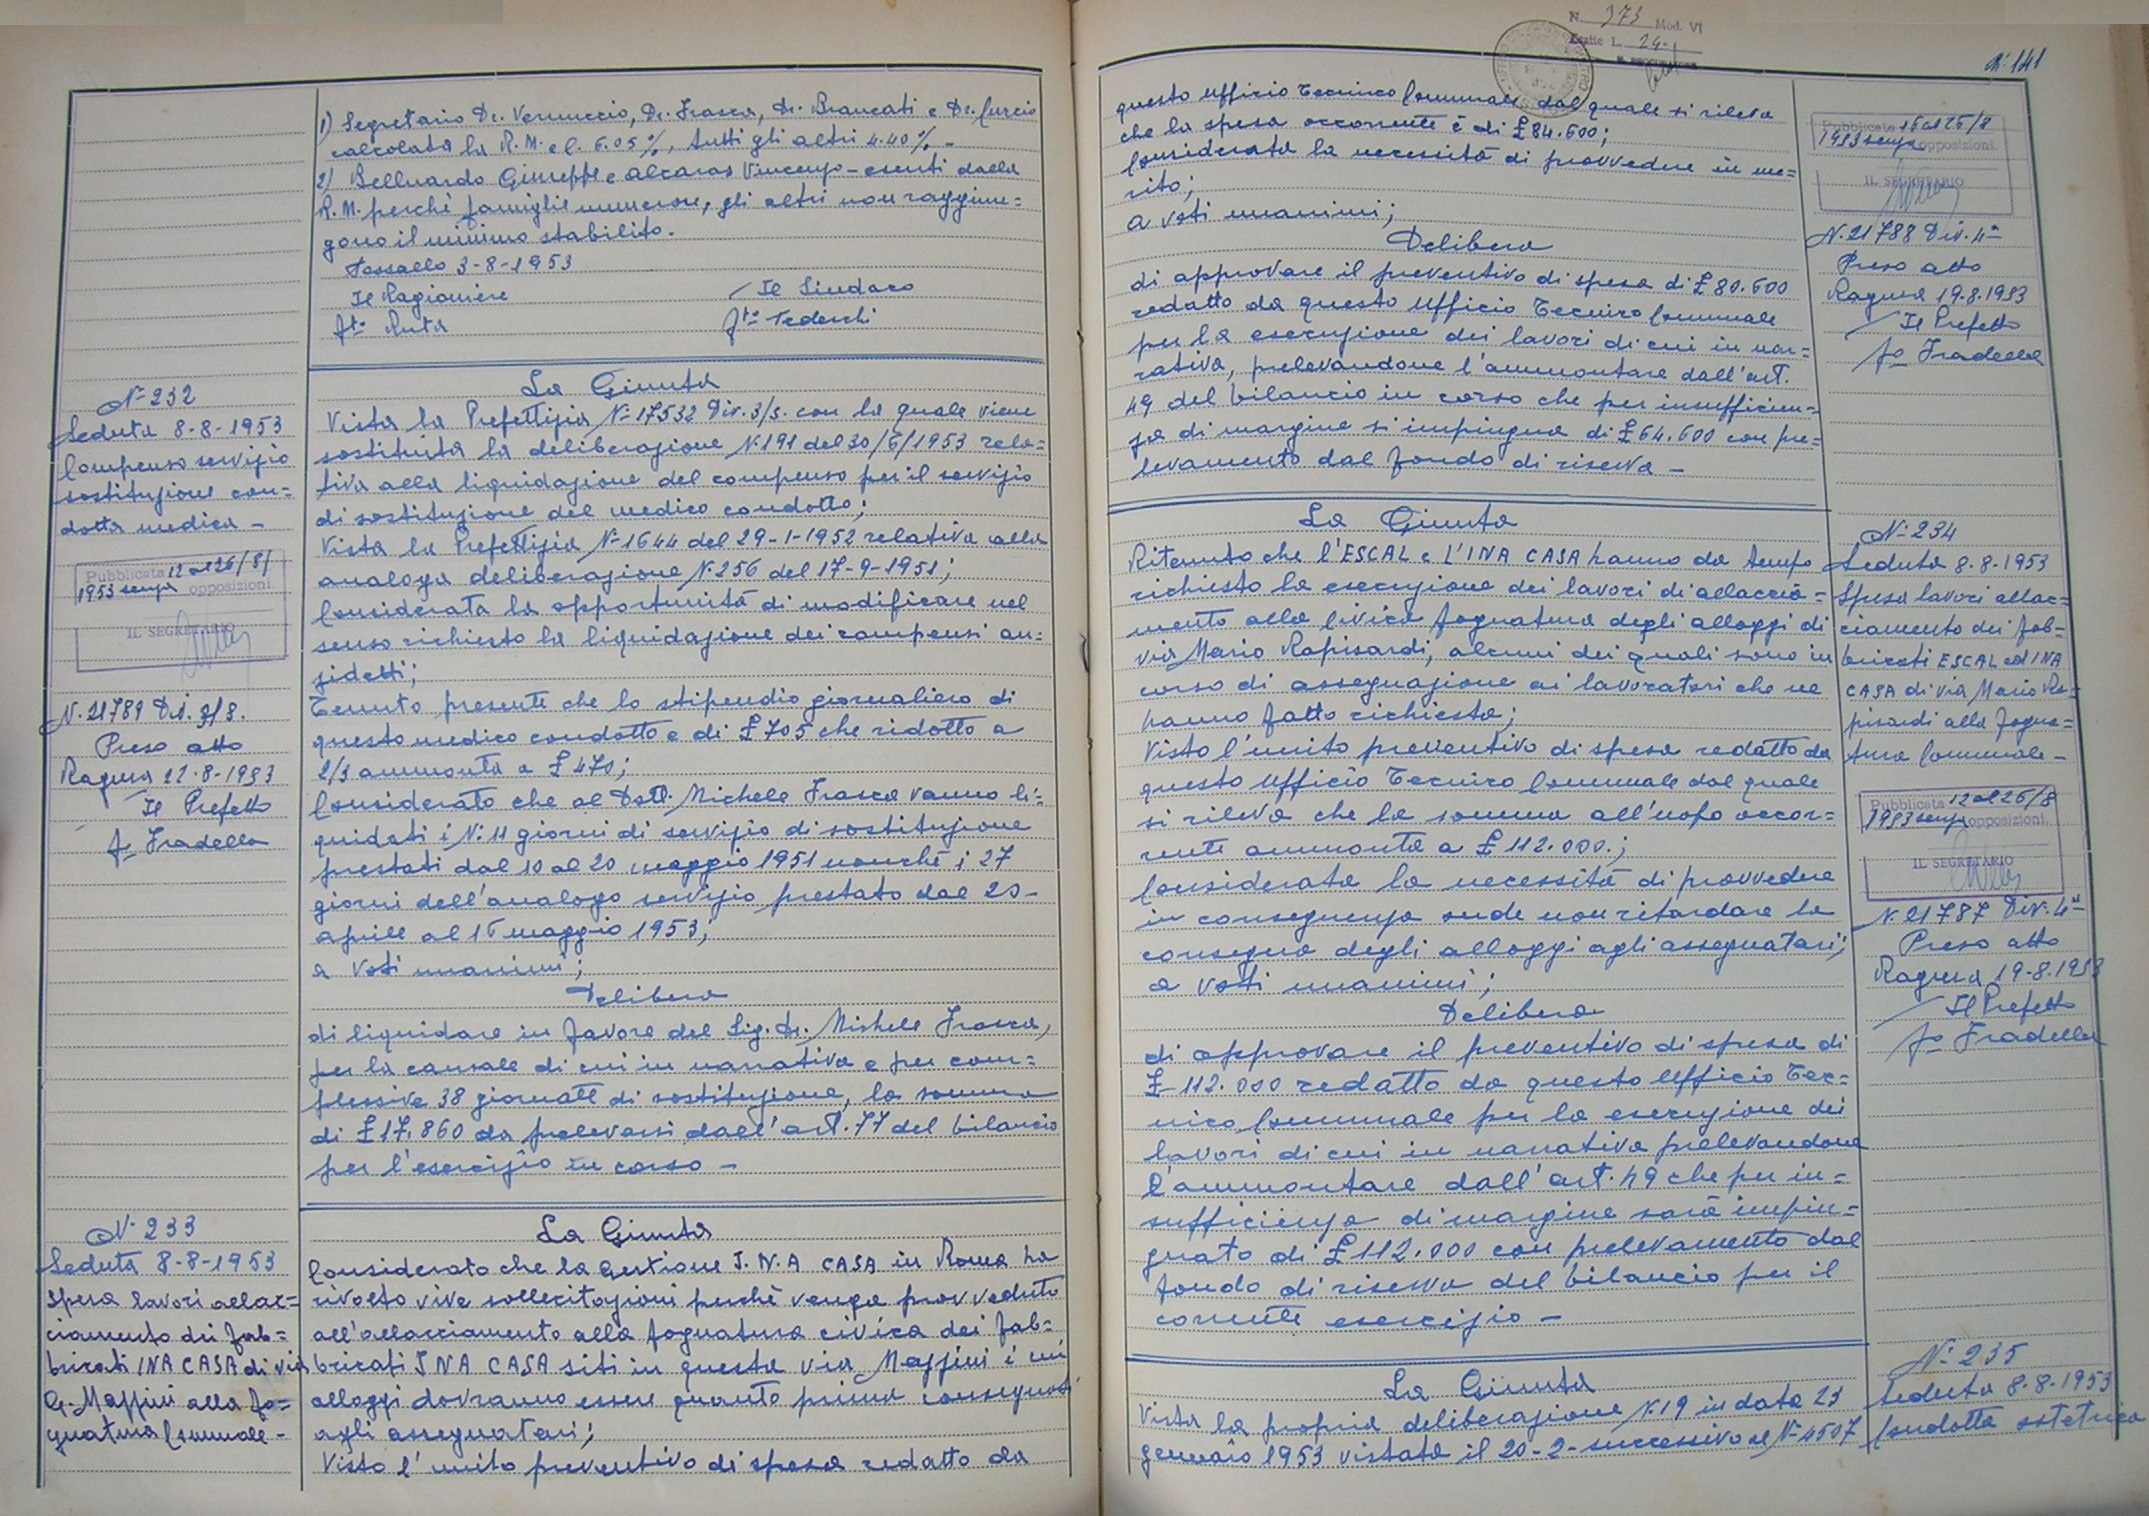 1) Segretario Dr. Vernuccio, Dr. Frasca, Dr. Brancati e Dr. Curcio
calcolata la R.M. e C. 6.05%, tutti gli altri 4.40% -
2) Belluardo Giuseppe e Alcaras Vincenzo - esenti dalla
R.M. perchè famiglie numerose, gli altri non raggiun=
gono il minimo stabilito.
3-8-1953
Il Ragioniere Il Sindaco
fto Ruta fto Tedeschi
N. 232
Seduta 8-8-1953
Compenso servizio
sostituzione con=
dotta medica -
Pubblicata 12 al 26/8/
1953 senza opposizioni.
IL SEGRETARIO
N. 21789 Div. 3/S.
Preso atto
Ragusa 22-8-1953
Il Prefetto
fo Fradella
La Giunta
Vista la Prefettizia N. 17532 Div. 3/S. con la quale viene
sostituita la deliberazione N. 191 del 30/6/1953 rela=
tiva alla liquidazione del compenso per il servizio
di sostituzione del medico condotto;
Vista la Prefettizia N. 1644 del 29-1-1952 relativa alla
analoga deliberazione N. 256 del 17-9-1951;
Considerata la opportunità di modificare nel
senso richiesto la liquidazione dei compensi an=
zidetti;
Tenuto presente che lo stipendio giornaliero di
questo medico condotto è di £ 705 che ridotto a
2/3 ammonta a £ 470;
Considerato che al Dott. Michele Frasca vanno li=
quidati i N. 11 giorni di servizio di sostituzione
prestati dal 10 al 20 maggio 1951 nonchè i 27
giorni dell'analogo servizio prestato dal 20-
aprile al 16 maggio 1953;
a voti unanimi;
Delibera
di liquidare in favore del Sig. Dr. Michele Frasca,
per la causale di cui in narrativa e per com=
plessive 38 giornate di sostituzione, la somma
di £ 17.860 da prelevarsi dall'art. 77 del bilancio
per l'esercizio in corso -
N. 233
Seduta 8-8-1953
Spesa lavori allac=
ciamento dei fab=
bricati INA CASA di via
G. Mazzini alla fo=
gnatura Comunale -
La Giunta
Considerato che la Gestione I.N.A CASA in Roma ha
rivolto vive sollecitazioni perchè venga provveduto
all'allacciamento alla fognatura civica dei fab=
bricati INA CASA siti in questa via Mazzini i cui
alloggi dovranno essere quanto prima consegnati
agli assegnatari;
Visto l'unito preventivo di spesa redatto da
N. 373 Mod. VI
Esatte L. 24
N. 141
questo Ufficio Tecnico Comunale dal quale si rileva
che la spesa occorrente è di £ 84.600;
Considerata la necessità di provvedere in me=
rito;
a voti unanimi;
Delibera
di approvare il preventivo di spesa di £ 80.600
redatto da questo Ufficio Tecnico Comunale
per la esecuzione dei lavori di cui in nar=
rativa, prelevandone l'ammontare dall'art.
49 del bilancio in corso che per insufficien=
za di margine si impingua di £ 64.600 con pre=
levamento dal fondo di riserva -
Pubblicata 15 al 26/8
1953 senza opposizioni.
IL SEGRETARIO
N. 21788 Div. 4a
Preso atto
Ragusa 19.8.1953
Il Prefetto
fo Fradella
La Giunta
Ritenuto che l'ESCAL e L'INA CASA hanno da tempo
richiesto la esecuzione dei lavori di allaccia=
mento alla civica fognatura degli alloggi di
via Mario Rapisardi, alcuni dei quali sono in
corso di assegnazione ai lavoratori che ne
hanno fatto richiesta;
Visto l'unito preventivo di spesa redatto da
questo Ufficio Tecnico Comunale dal quale
si rileva che la somma all'uopo occor=
rente ammonta a £ 112.000.;
Considerata la necessità di provvedere
in conseguenza onde non ritardare la
consegna degli alloggi agli assegnatari;
a voti unanimi;
Delibera
di approvare il preventivo di spesa di
£ 112.000 redatto da questo Ufficio Tec=
nico Comunale per la esecuzione dei
lavori di cui in narrativa prelevandone
l'ammontare dall'art. 49 che per in=
sufficienza di margine sarà impin=
guato di £ 112.000 con prelevamento dal
fondo di riserva del bilancio per il
corrente esercizio -
N. 234
Seduta 8.8.1953
Spesa lavori allac=
ciamento dei fab=
bricati ESCAL ed INA
CASA di via Mario Ra=
pisardi alla fogna=
tura Comunale -
Pubblicata 12 al 26/8
1953 senza opposizioni.
IL SEGRETARIO
N. 21787 Div. 4a
Preso atto
Ragusa 19-8.1953
Il Prefetto
fo Fradella
La Giunta
Vista la propria deliberazione N. 19 in data 23
gennaio 1953 vistata il 20-2-successivo al N. 4507
N. 235
Seduta 8.8.1953
Condotta ostetrica